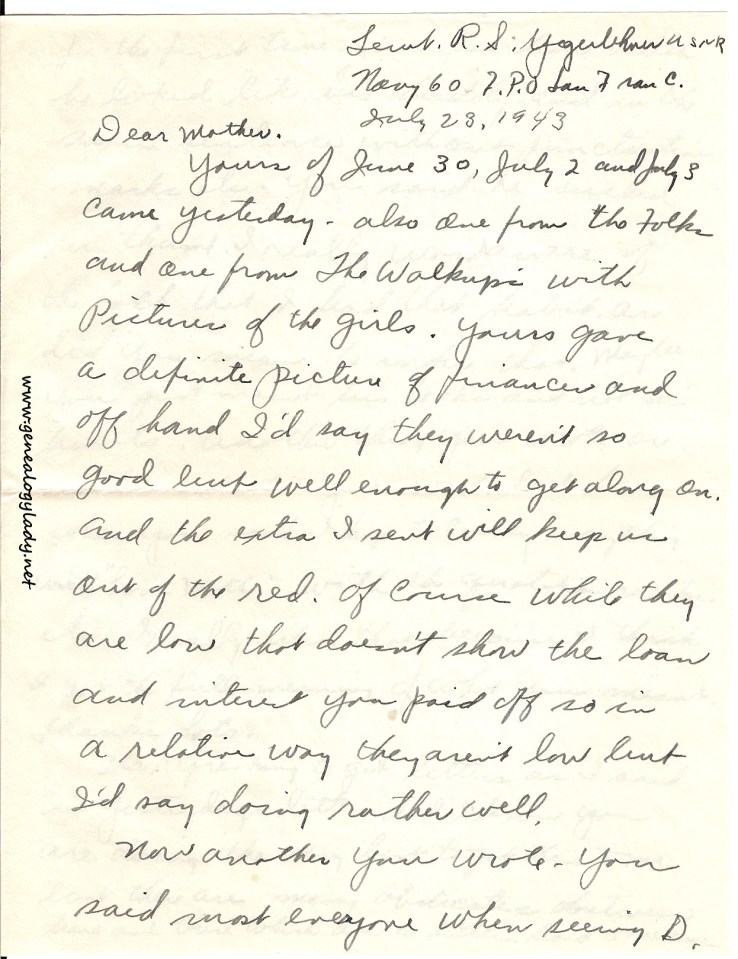 Lieut. R. S. Yegerlehner USNR
Navy 60 F.P.O San Fran C.
July 23, 1943
Dear Mother.
Yours of June 30, July 2 and July 3
came yesterday - also one from the Folks
and one from The Walkups with
Pictures of the girls. Yours gave
a definite picture of finances and
off hand I'd say they weren't so
good but well enough to get along on.
And the extra I sent will keep us
out of the red. Of Course while they
are low that doesn't show the loan
and interest you paid off so in
a relative way they aren't low but
I'd say doing rather well.
Now another you wrote - You
said most everyone when seeing D.
www.genealogylady.net